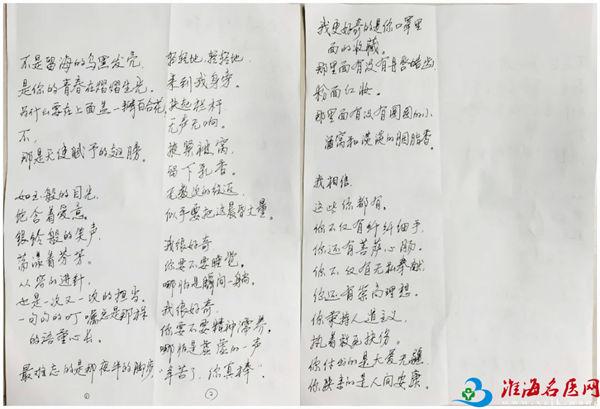 不是留海的乌黑发亮
是你的青春在熠熠生光。
为什么要在上面盖一束百合花，
不，
那是天使赋予的翅膀。
如玉般的目光，
饱含着爱意。
银铃般的笑声，
荡漾着芬芳。
从容的进针，
也是一次又一次的担当。
一句句的叮嘱总是那样
的语重心长。
最难忘的是那夜半的脚步
①
轻轻地，轻轻地，
来到我身旁。
扶起栏杆
无声无响。
掖紧被窝
留下乳香。
无数遍的往返
似乎要把这晨昏丈量。
我很好奇
你要不要睡觉。
哪怕是瞬间一躺。
我很好奇
你要不要精神营养。
哪怕是虚虚的一声
"辛苦了，你真棒"
②
我更好奇的是你口罩里
面的收藏。
那里面有没有唇皓齿
粉面红妆。
那里面有没有圆圆的小
酒窝和淡淡的胭脂香。
我相信，
这些你都有。
你不仅有纤纤细手，
你还有菩萨心肠。
你不仅有无私奉献，
你还有崇高理想。
你秉持人道主义，
执着救死扶伤。
你付出的是大爱无疆
你换来的是人间安康。
淮海名医网